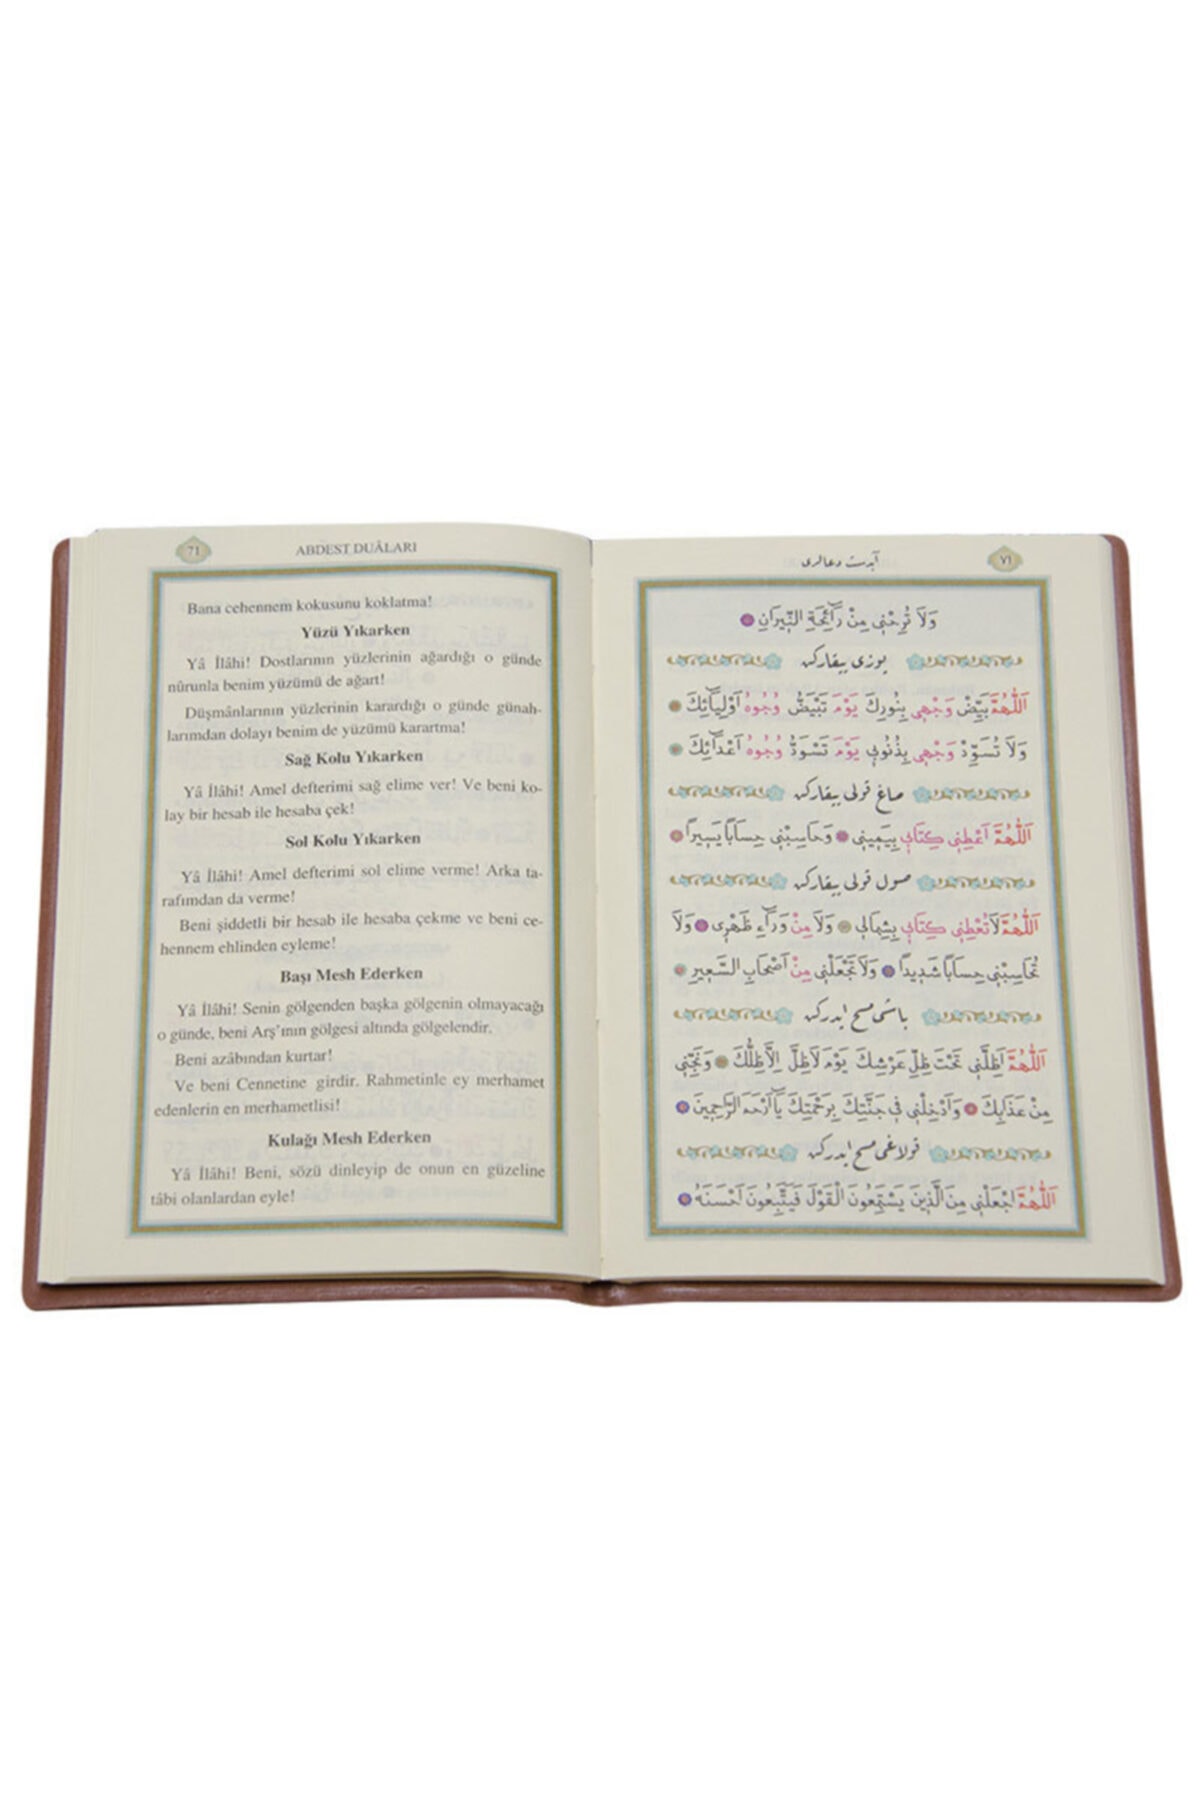 71
ABDEST DUÂLARI
Bana cehennem kokusunu koklatma!
Yüzü Yıkarken
Yâ İlâhi! Dostlarının yüzlerinin ağardığı o günde
nûrunla benim yüzümü de ağart!
Düşmânlarının yüzlerinin karardığı o günde günah-
larımdan dolayı benim de yüzümü karartma!
Sağ Kolu Yıkarken
Yâ İlâhi! Amel defterimi sağ elime ver! Ve beni ko-
lay bir hesab ile hesaba çek!
Sol Kolu Yıkarken
Yâ İlâhi! Amel defterimi sol elime verme! Arka ta-
rafımdan da verme!
Beni şiddetli bir hesab ile hesaba çekme ve beni ce-
hennem ehlinden eyleme!
Başı Mesh Ederken
Yâ İlâhi! Senin gölgenden başka gölgenin olmayacağı
o günde, beni Arş'ının gölgesi altında gölgelendir.
Beni azâbından kurtar!
Ve beni Cennetine girdir. Rahmetinle ey merhamet
edenlerin en merhametlisi!
Kulağı Mesh Ederken
Yâ İlâhi! Beni, sözü dinleyip de onun en güzeline
tâbi olanlardan eyle!
آبدست دعالری
٧١
وَلَا تُرِحْنِي مِنْ رَائِحَةِ النِّيرَانِ
يوزى ييقاركن
اَللّٰهُمَّ بَيِّضْ وَجْهِي بِنُورِكَ يَوْمَ تَبْيَضُّ وُجُوهُ اَوْلِيَآئِكَ
وَلَا تُسَوِّدْ وَجْهِي بِذُنُوبِي يَوْمَ تَسْوَدُّ وُجُوهُ اَعْدَآئِكَ
صاغ قولى ييقاركن
اَللّٰهُمَّ اَعْطِنِي كِتَابِي بِيَمِينِي وَحَاسِبْنِي حِسَابًا يَسِيرًا
صول قولى ييقاركن
اَللّٰهُمَّ لَا تُعْطِنِي كِتَابِي بِشِمَالِي وَلَا مِنْ وَرَآءِ ظَهْرِي وَلَا
تُحَاسِبْنِي حِسَابًا شَدِيدًا وَلَا تَجْعَلْنِي مِنْ اَصْحَابِ السَّعِيرِ
باشى مسح ايدركن
اَللّٰهُمَّ اَظِلَّنِي تَحْتَ ظِلِّ عَرْشِكَ يَوْمَ لَا ظِلَّ اِلَّا ظِلُّكَ وَنَجِّنِي
مِنْ عَذَابِكَ وَاَدْخِلْنِي فِي جَنَّتِكَ بِرَحْمَتِكَ يَآ اَرْحَمَ الرَّاحِمِينَ
قولاغى مسح ايدركن
اَللّٰهُمَّ اجْعَلْنِي مِنَ الَّذِينَ يَسْتَمِعُونَ الْقَوْلَ فَيَتَّبِعُونَ اَحْسَنَهُ